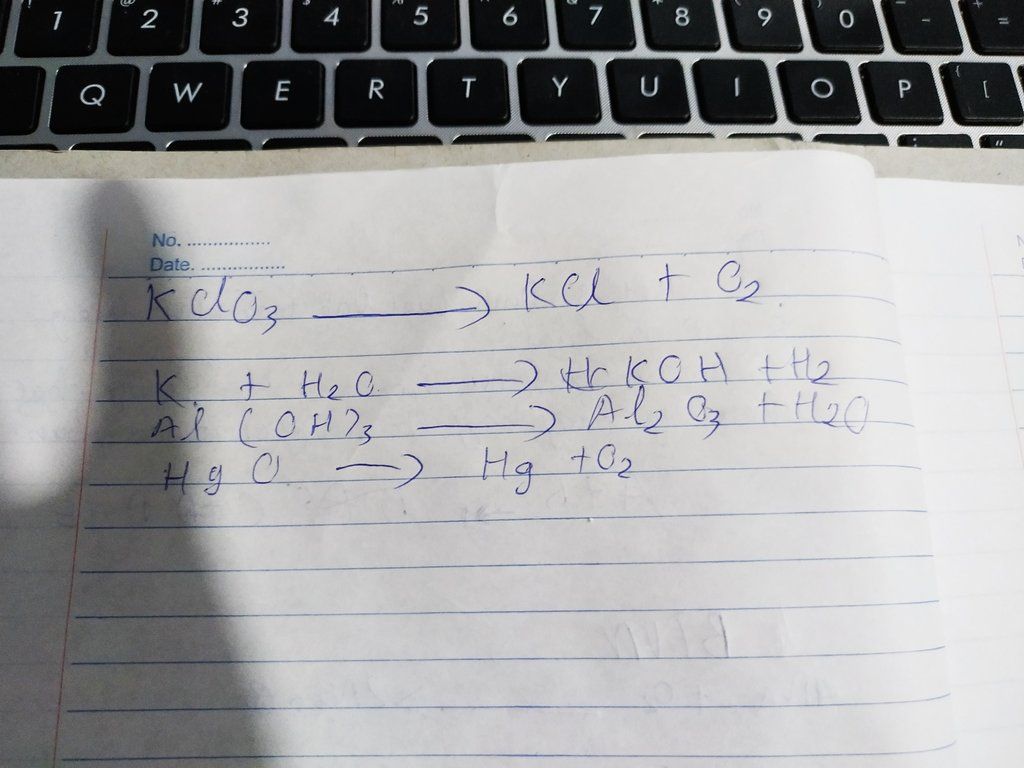 ! 1 @ 2 # 3 $ 4 % 5 ^ 6 & 7 * 8 ( 9 ) 0 - + =
Q W E R T Y U I O P { [
No. ................
Date. ................
KClO3 ⟶ KCl + O2
K + H2O ⟶ KOH + H2
Al(OH)3 ⟶ Al2O3 + H2O
HgO ⟶ Hg + O2